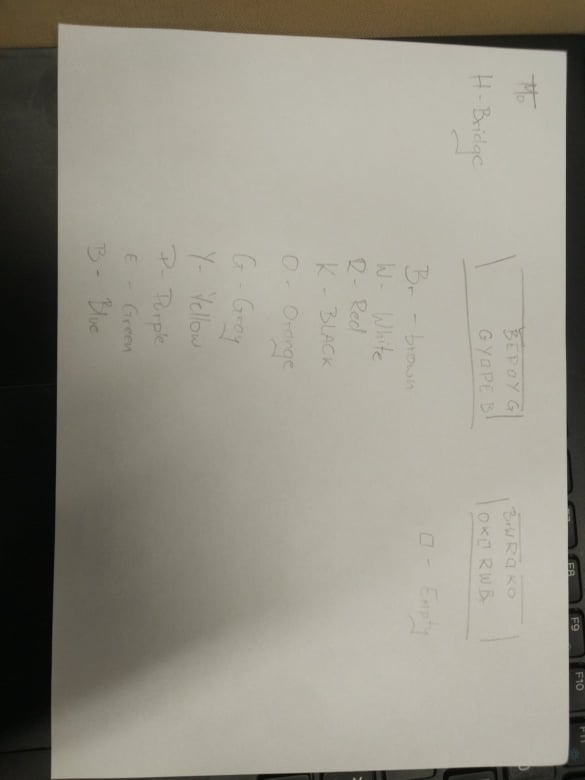 H-Bridge
BEPOYG
GYOPEB
BrWR□KO
OK□RWB
Br - brown
W - White
R - Red
K - BLACK
O - Orange
G - Gray
Y - Yellow
P - Purple
E - Green
B - Blue
□ - Empty
F8
F9
F10